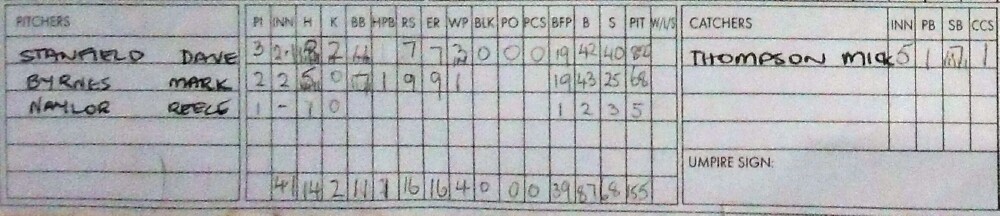 PITCHERS PI INN H K BB HPB RS ER WP BLK PO PCS BFP B S PIT W/L/S CATCHERS INN PB SB CCS
STANFIELD DAVE 3 2 2 7 7 3 0 0 0 19 42 40 THOMPSON 5 1 1
BYRNES MARK 2 2 5 0 1 9 9 1 19 43 25 68
NAYLOR REECE 1 - 1 0 1 2 3 5
UMPIRE SIGN:
41 14 2 11 1 16 16 4 0 0 0 39 87 68 155